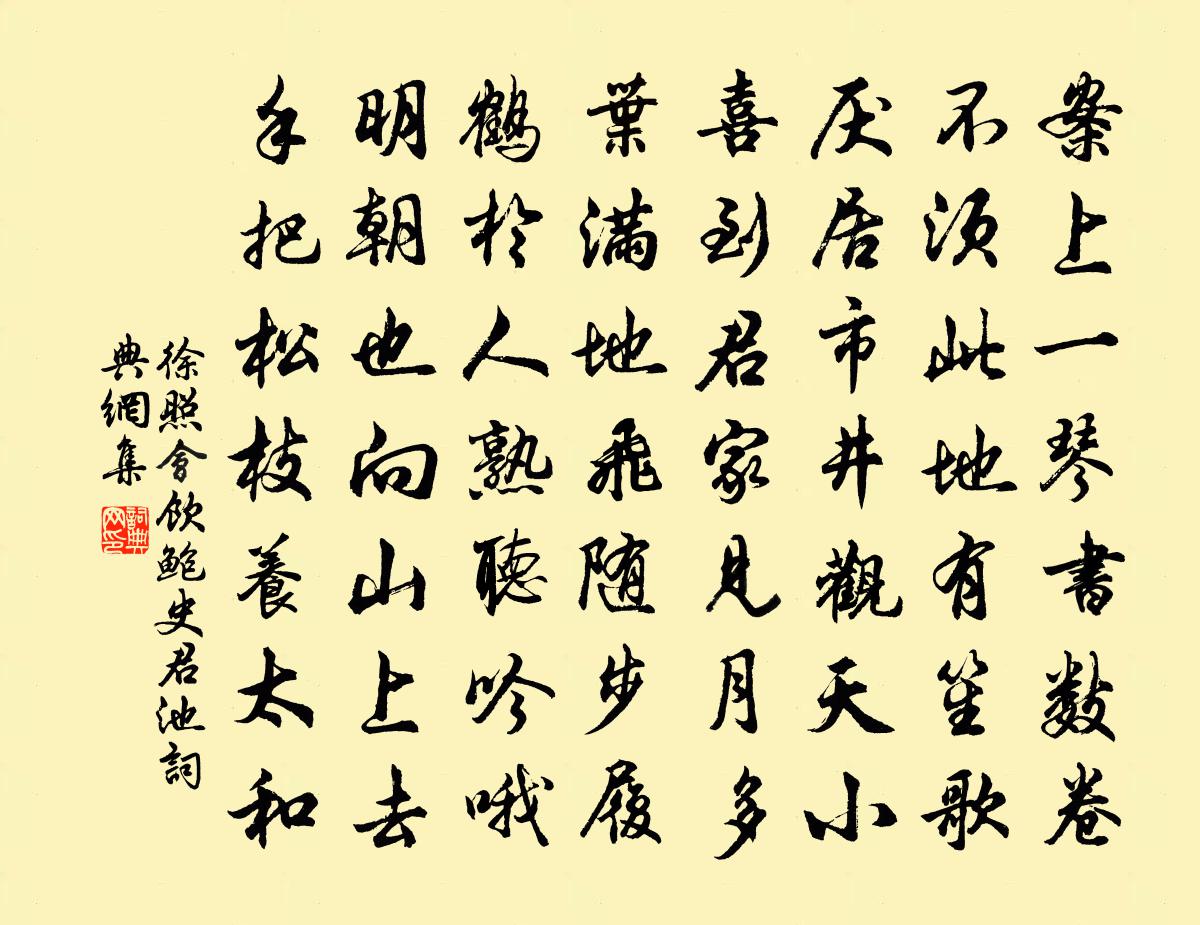 案上一琴書数卷
不須此地有笙歌
厌居市井觀天小
喜到君家見月多
葉滿地飛随步履
鶴於人熟聽吟哦
明朝也向山上去
手把松枝養太和
徐照會飲鮑史君池詞
典網集
詞典
网印